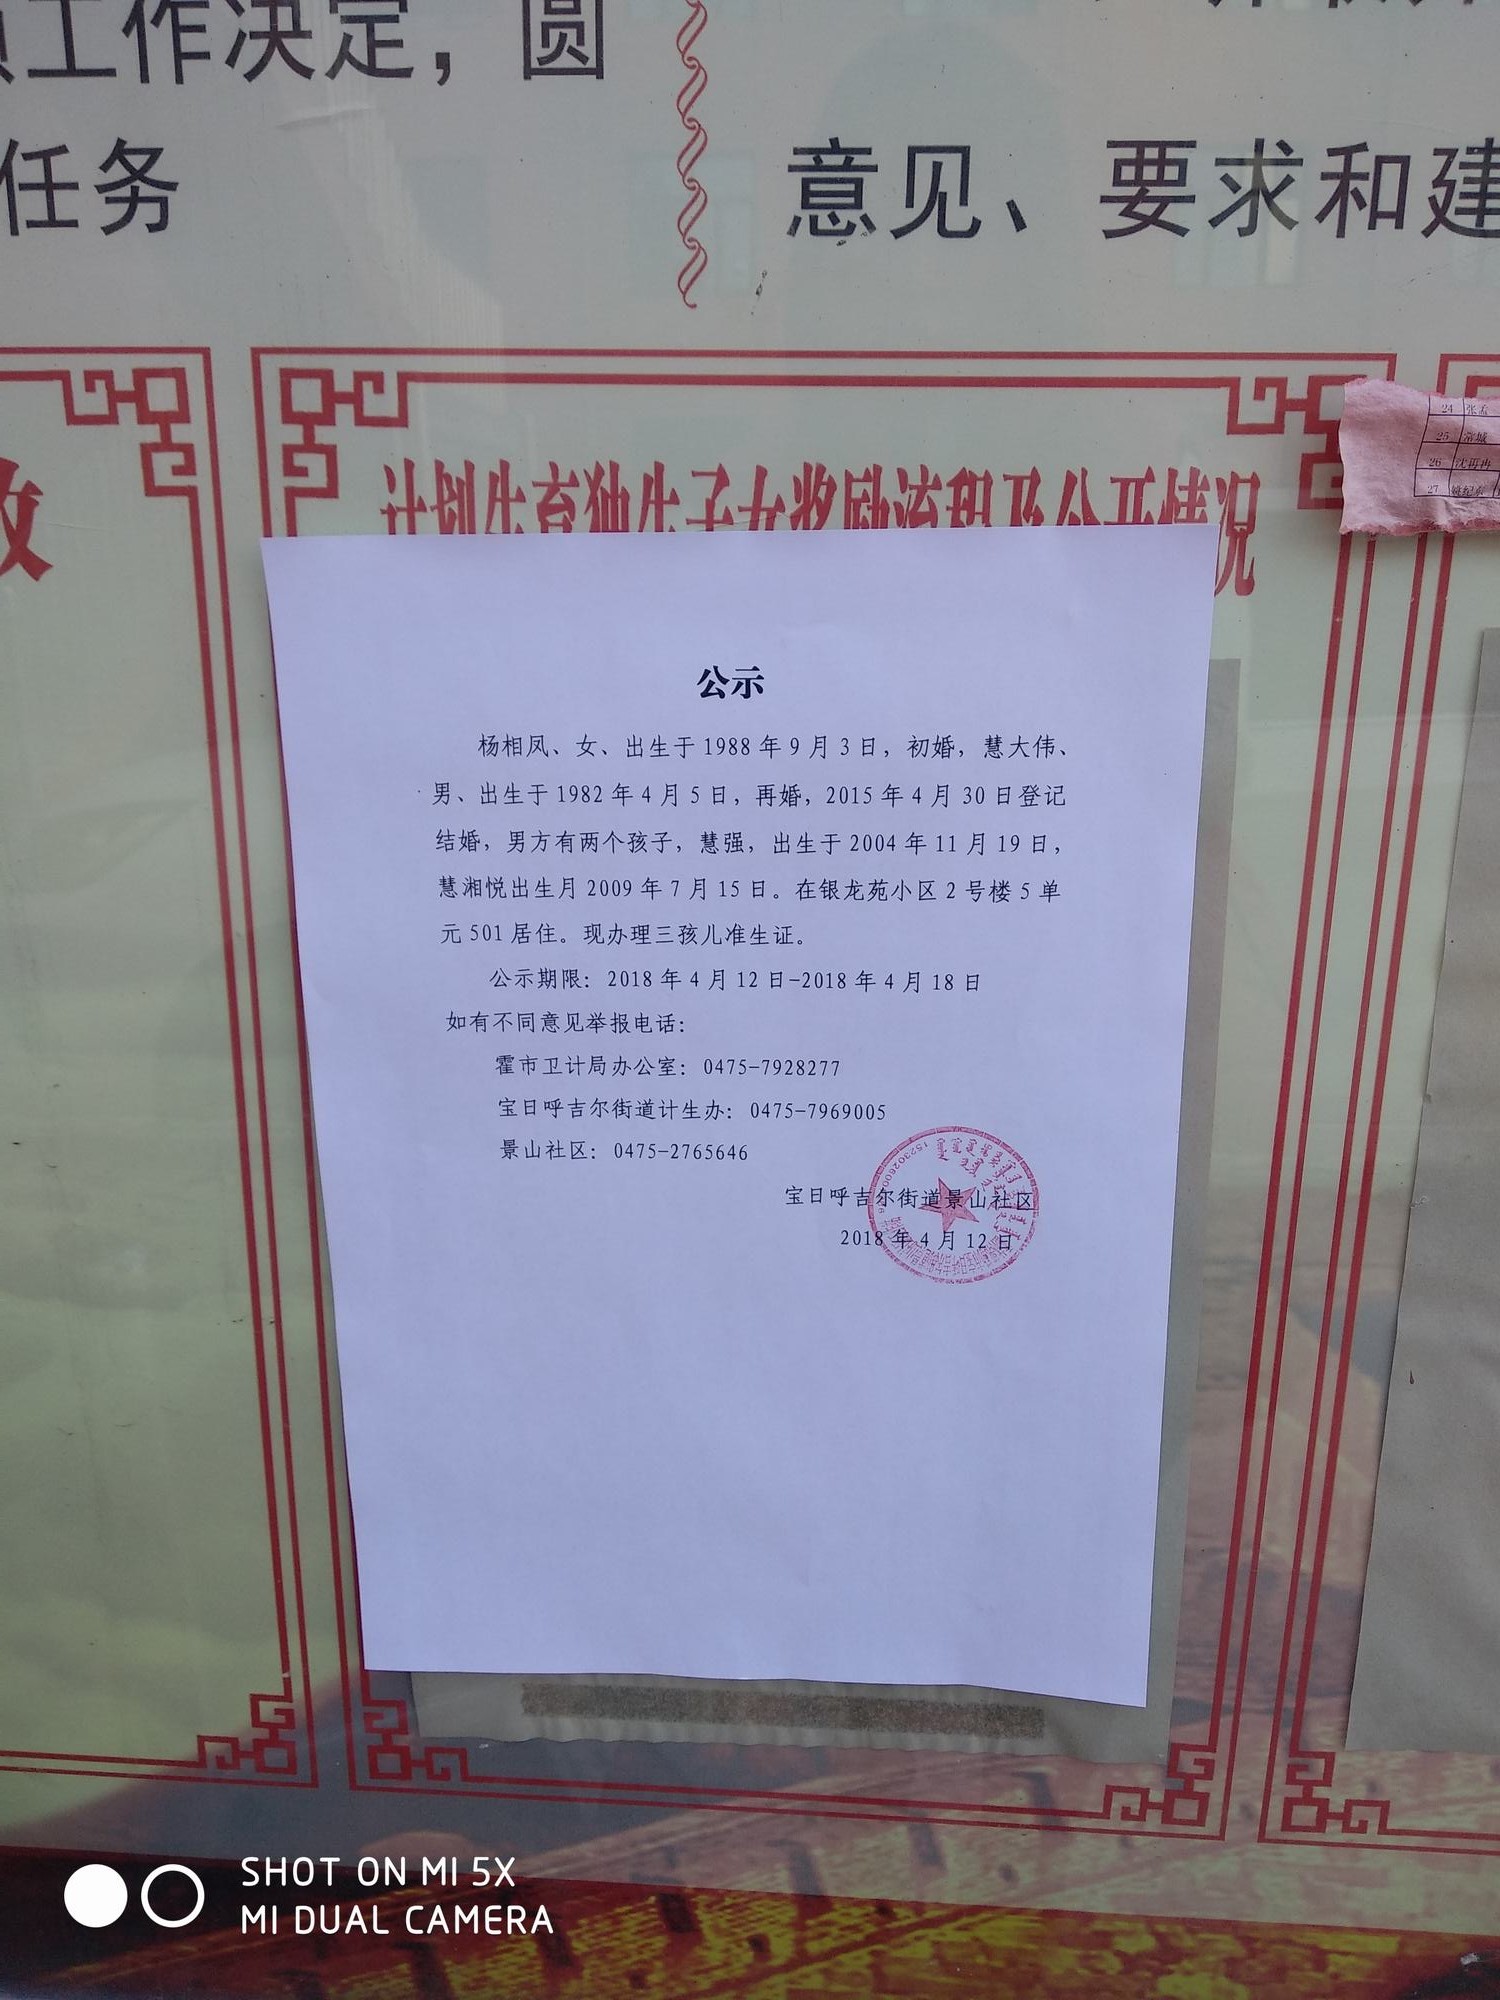 工作决定，圆
任务
意见、要求和建
计划生育独生子女奖励流程及公开情况
24 张孟
25 常城
26 沈再冉
27
公示
杨相凤、女、出生于1988年9月3日，初婚，慧大伟、
男、出生于1982年4月5日，再婚，2015年4月30日登记
结婚，男方有两个孩子，慧强，出生于2004年11月19日，
慧湘悦出生月2009年7月15日。在银龙苑小区2号楼5单
元501居住。现办理三孩儿准生证。
公示期限：2018年4月12日-2018年4月18日
如有不同意见举报电话：
霍市卫计局办公室：0475-7928277
宝日呼吉尔街道计生办：0475-7969005
景山社区：0475-2765646
宝日呼吉尔街道景山社区
2018年4月12日
SHOT ON MI 5X
MI DUAL CAMERA